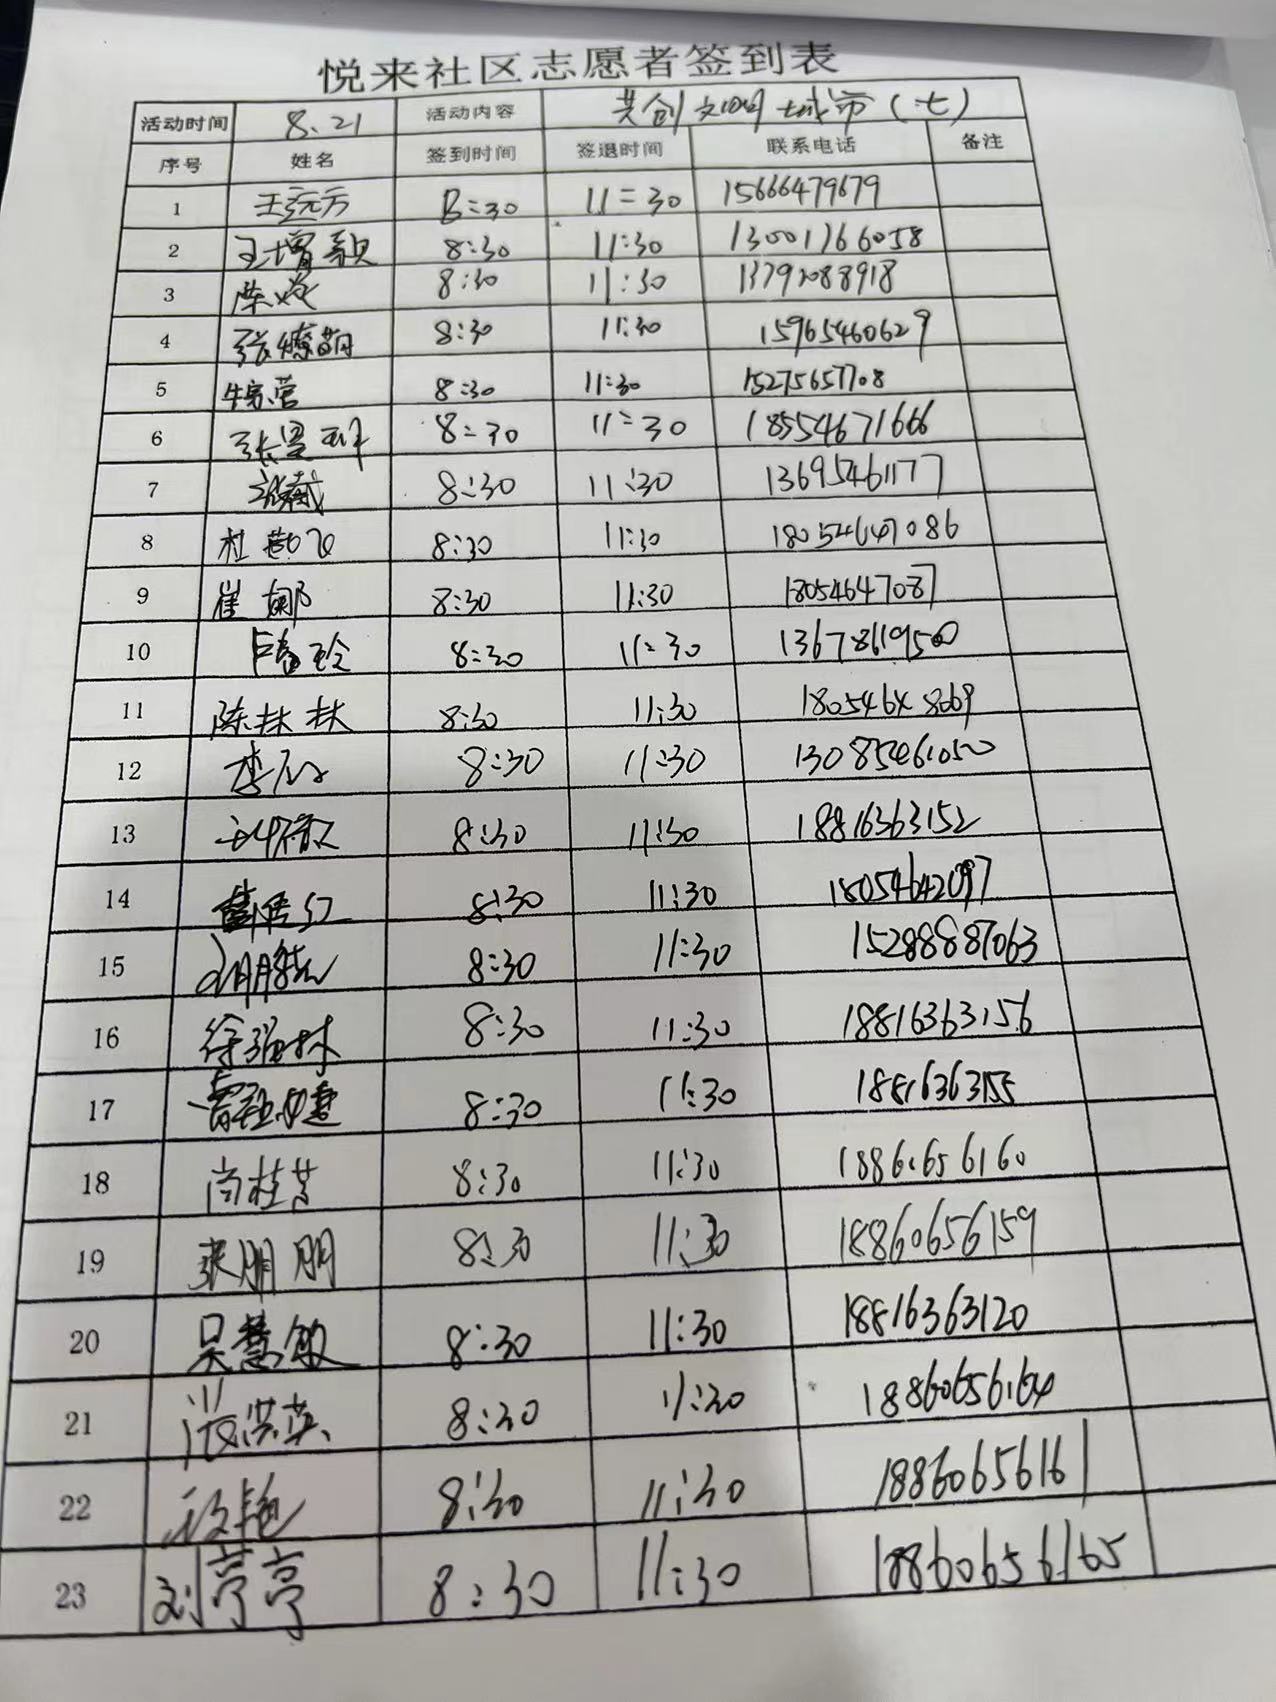 悦来社区志愿者签到表
活动时间 8.21 活动内容 共创文明城市（七）
序号 姓名 签到时间 签退时间 联系电话 备注
1 王远方 8:30 11:30 15666479679
2 王增颖 8:30 11:30 13001766058
3 陈焱 8:30 11:30 13792088918
4 张燎萌 8:30 11:30 15965460629
5 8:30 11:30 15275657708
6 8:30 11:30 18554671666
7 8:30 11:30 13695461177
8 杜 8:30 11:30 18054647086
9 崔娜 8:30 11:30 18054647087
10 8:30 11:30 13678619500
11 陈扶扶 8:30 11:30
12 李 8:30 11:30 13085461050
13 8:30 11:30 18816363152
14 8:30 11:30 18054642097
15 8:30 11:30 15288887063
16 徐强林 8:30 11:30 18816363156
17 8:30 11:30 18816363155
18 尚桂芳 8:30 11:30 18860656160
19 张朋朋 8:30 11:30 18860656159
20 吴慧敏 8:30 11:30 18816363120
21 8:30 11:30 18860656164
22 8:30 11:30 18860656161
23 刘亭亭 8:30 11:30 18860656165